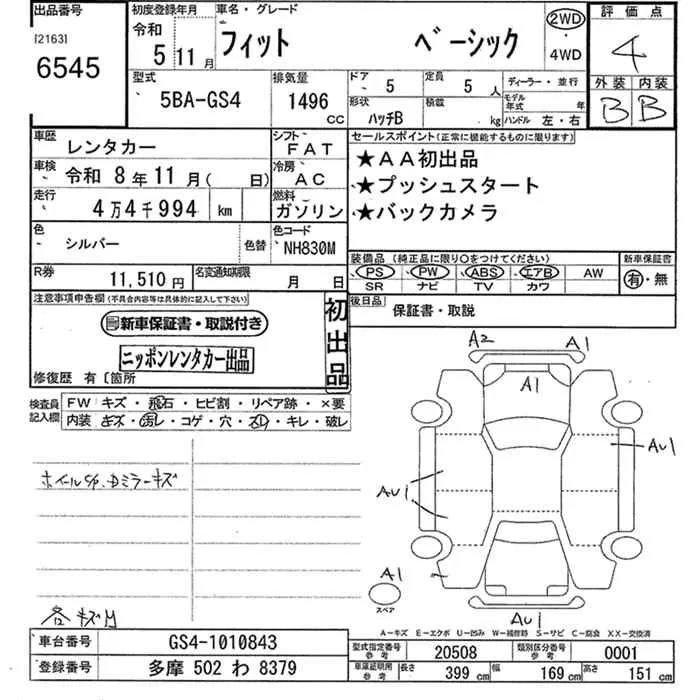 出品番号
[2163]
6545
初度登録年月
令和
5 11 月
車名・グレード
フィット ベーシック
2WD
・
4WD
評価点
4
外装 内装
B B
型式
5BA-GS4
排気量
1496
CC
ドア
5
定員
5 人
ディーラー・並行
形状
ハッチB
積載
kg
モデル
年式 年
ハンドル 左・右
車歴
レンタカー
シフト
FAT
車検
令和 8 年 11 月 ( 日)
冷房
AC
走行
4万4千994 km
燃料
ガソリン
セールスポイント(正常に機能するものに限ります)
★AA初出品
★プッシュスタート
★バックカメラ
色
シルバー
色替
色コード
NH830M
装備品 (純正品に限り○をつけてください)
PS PW ABS エアB AW
SR ナビ TV カワ
新車保証書
有・無
R券
11,510 円
名変通知期限
月 日
後日品
保証書・取説
注意事項申告欄(不具合内容等は具体的に記入して下さい)
新車保証書・取説付き
ニッポンレンタカー出品
初出品
修復歴 有 〔箇所
検査員
記入欄
FW キズ・飛石・ヒビ割・リペア跡・×要
内装 キズ・汚レ・コゲ・穴・スレ・キレ・破レ
A2
A1
A1
AU1
AU1
A1
スペア
AU1
A-キズ E-エクボ U-凹み W-補修跡 S-サビ C-腐食 XX-交換済
車台番号
GS4-1010843
登録番号
多摩 502 わ 8379
型式指定番号
参考
20508
類別区分番号
参考
0001
車庫証明用
参考
長さ
399 cm
幅
169 cm
高さ
151 cm